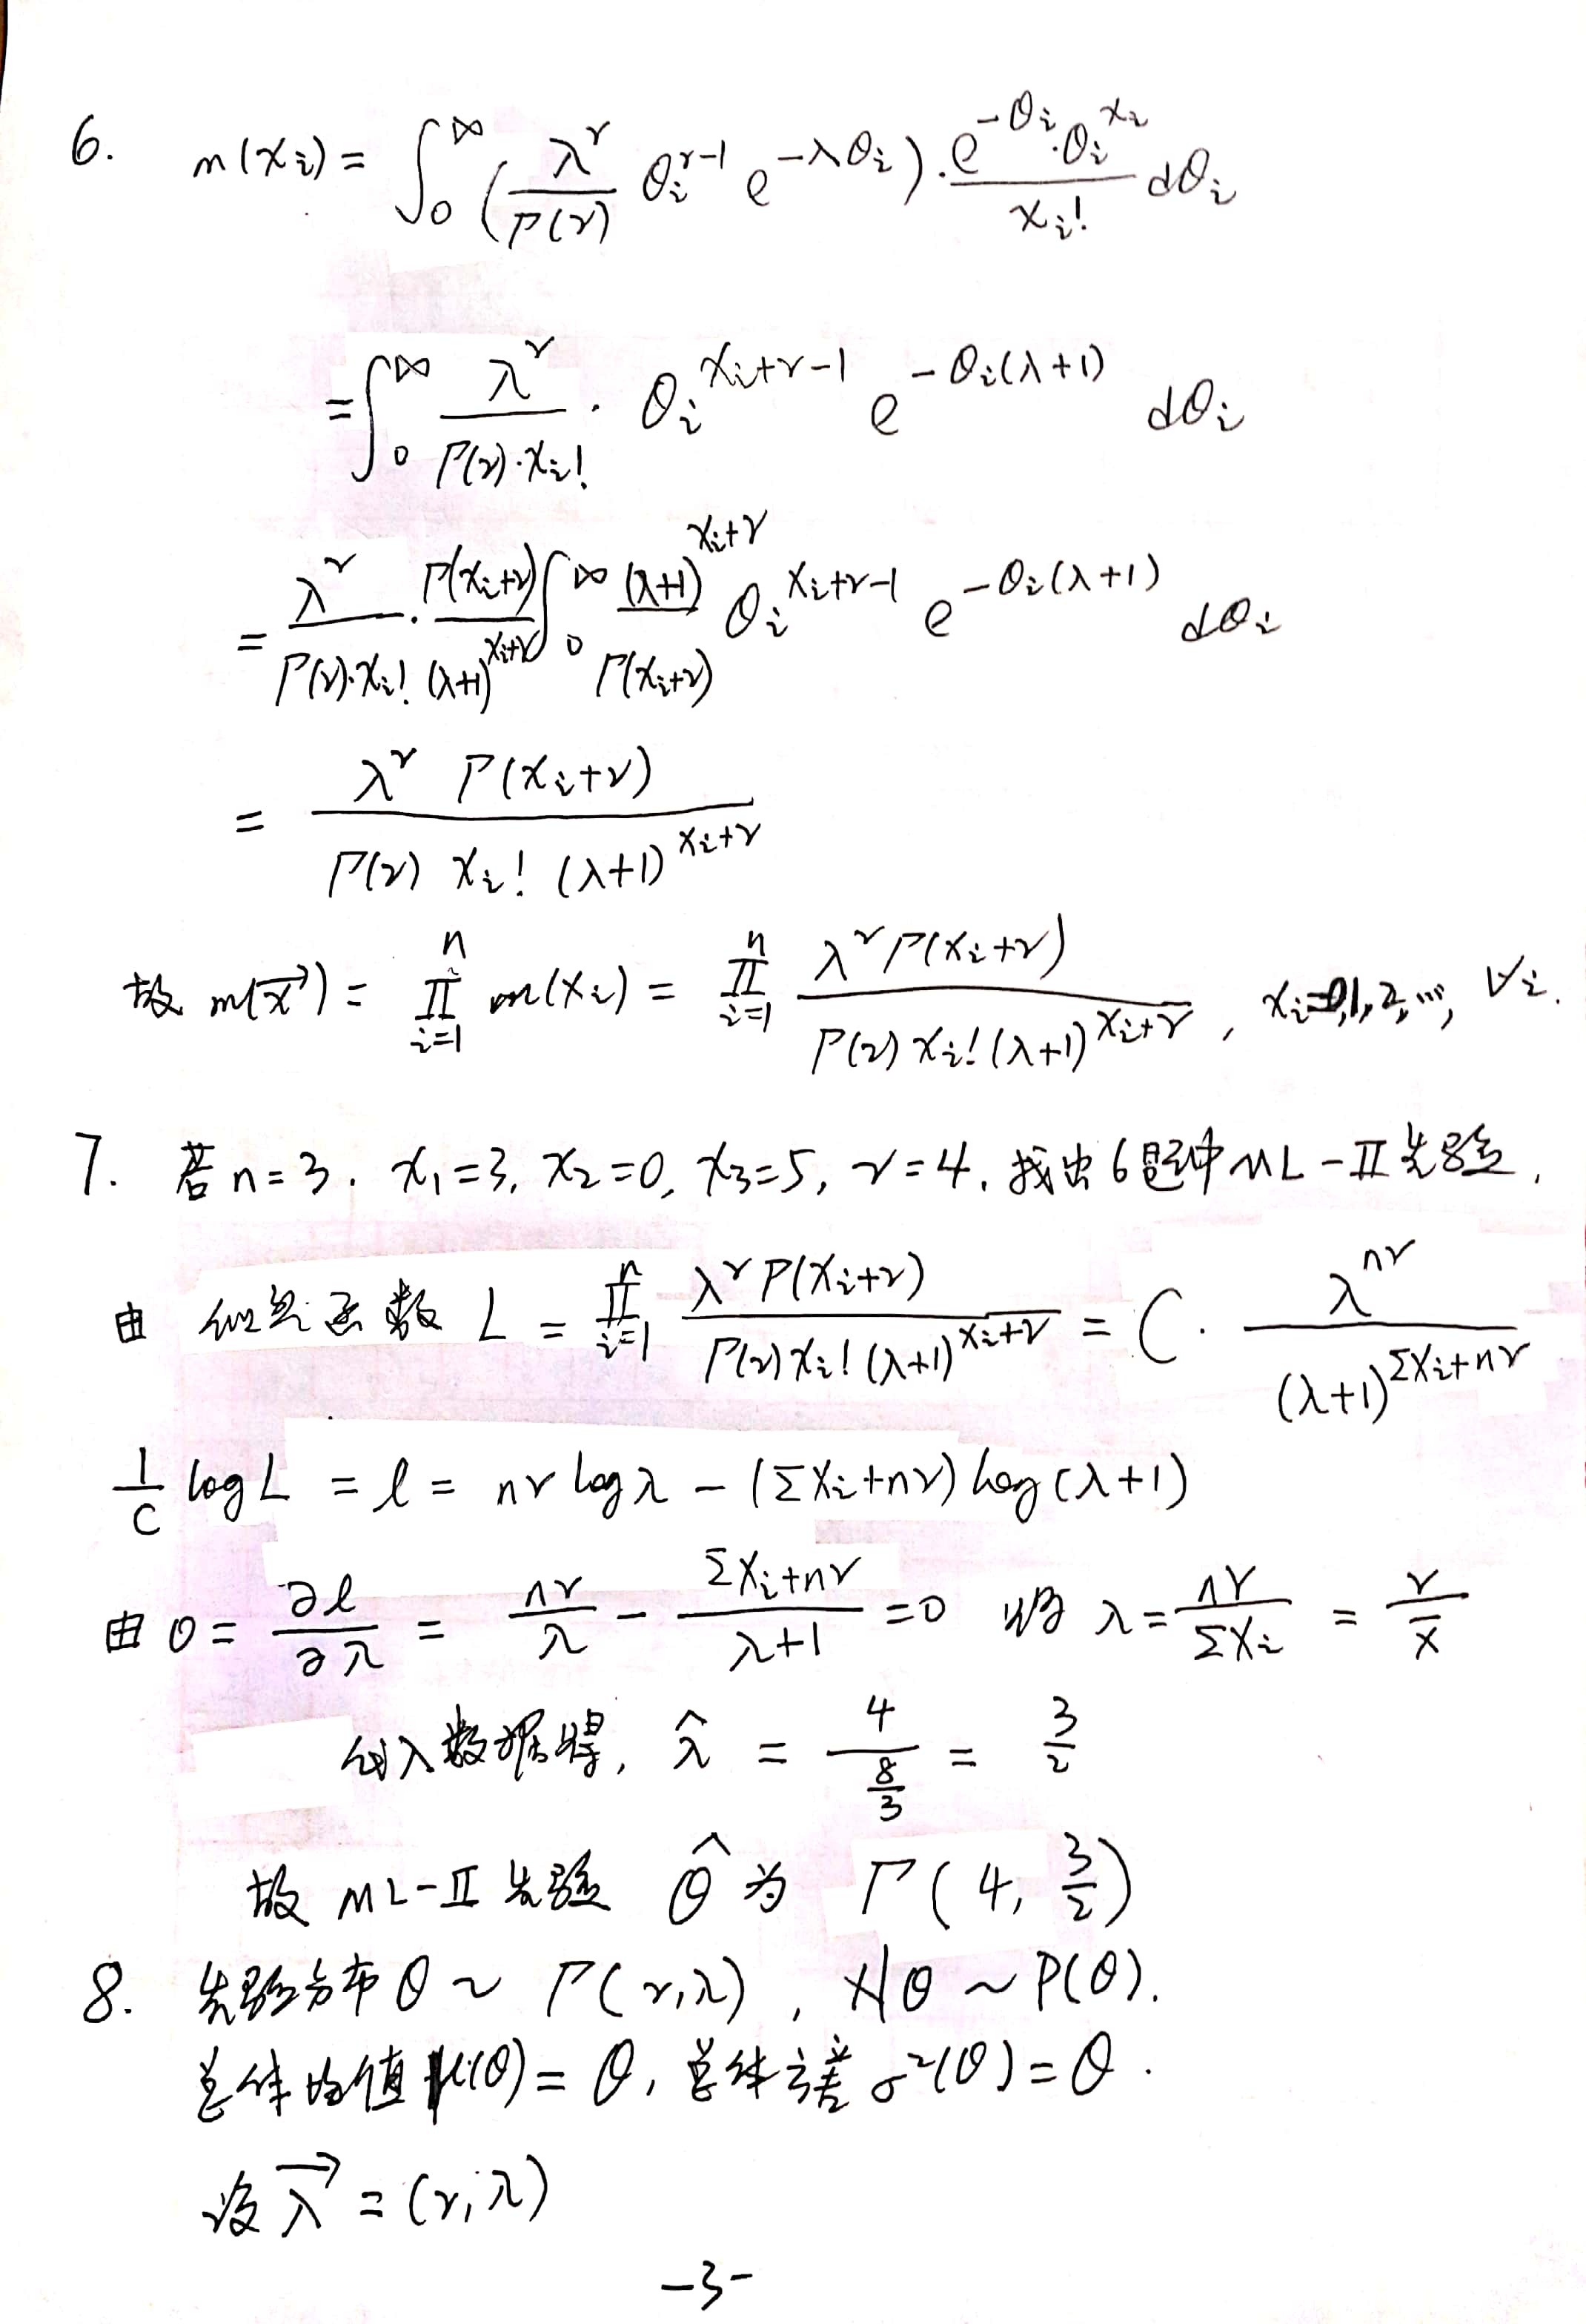 6. m(xᵢ) = ∫₀^∞ (λ^r/Γ(r) θᵢ^(r-1) e^(-λθᵢ)) · (e^(-θᵢ)·θᵢ^(xᵢ))/xᵢ! dθᵢ
= ∫₀^∞ λ^r/(Γ(r)·xᵢ!) · θᵢ^(xᵢ+r-1) e^(-θᵢ(λ+1)) dθᵢ
= λ^r/(Γ(r)·xᵢ!) · Γ(xᵢ+r)/(λ+1)^(xᵢ+r) ∫₀^∞ (λ+1)^(xᵢ+r)/Γ(xᵢ+r) θᵢ^(xᵢ+r-1) e^(-θᵢ(λ+1)) dθᵢ
= λ^r Γ(xᵢ+r)/(Γ(r) xᵢ! (λ+1)^(xᵢ+r))
故 m(x⃗) = ∏ᵢ₌₁ⁿ m(xᵢ) = ∏ᵢ₌₁ⁿ λ^r Γ(xᵢ+r)/(Γ(r) xᵢ! (λ+1)^(xᵢ+r)), xᵢ=0,1,2,…, ∀i.
7. 若n=3. x₁=3, x₂=0, x₃=5, r=4. 找出6题中ML-Ⅱ先验.
由 似然函数 L = ∏ᵢ₌₁ⁿ λ^r Γ(xᵢ+r)/(Γ(r) xᵢ! (λ+1)^(xᵢ+r)) = C · λ^(nr)/(λ+1)^(Σxᵢ+nr)
1/C log L = l = nr log λ - (Σxᵢ+nr) log(λ+1)
由 0 = ∂l/∂λ = nr/λ - (Σxᵢ+nr)/(λ+1) = 0 得 λ = nr/Σxᵢ = r/x̄
代入数据得, λ̂ = 4/(8/3) = 3/2
故 ML-Ⅱ 先验 θ̂ 为 Γ(4, 3/2)
8. 先验分布 θ ~ Γ(r,λ), X|θ ~ P(θ).
总体均值 μ(θ) = θ, 总体方差 σ²(θ) = θ.
设 λ⃗ = (r,λ)
-3-